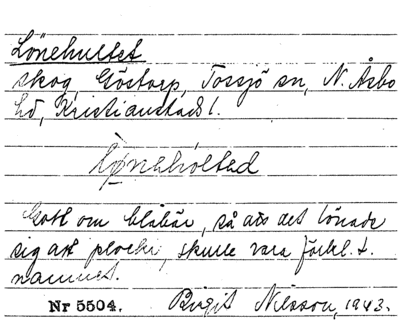 Lönehultet
skog, Göstorp, Tossjö sn, N. Åsbo
hd, Kristianstads l.
Gott om blåbär, så att det lönade
sig att plocka, skulle vara förkl. t.
namnet.
Nr 5504. Birgit Nilsson, 1943.